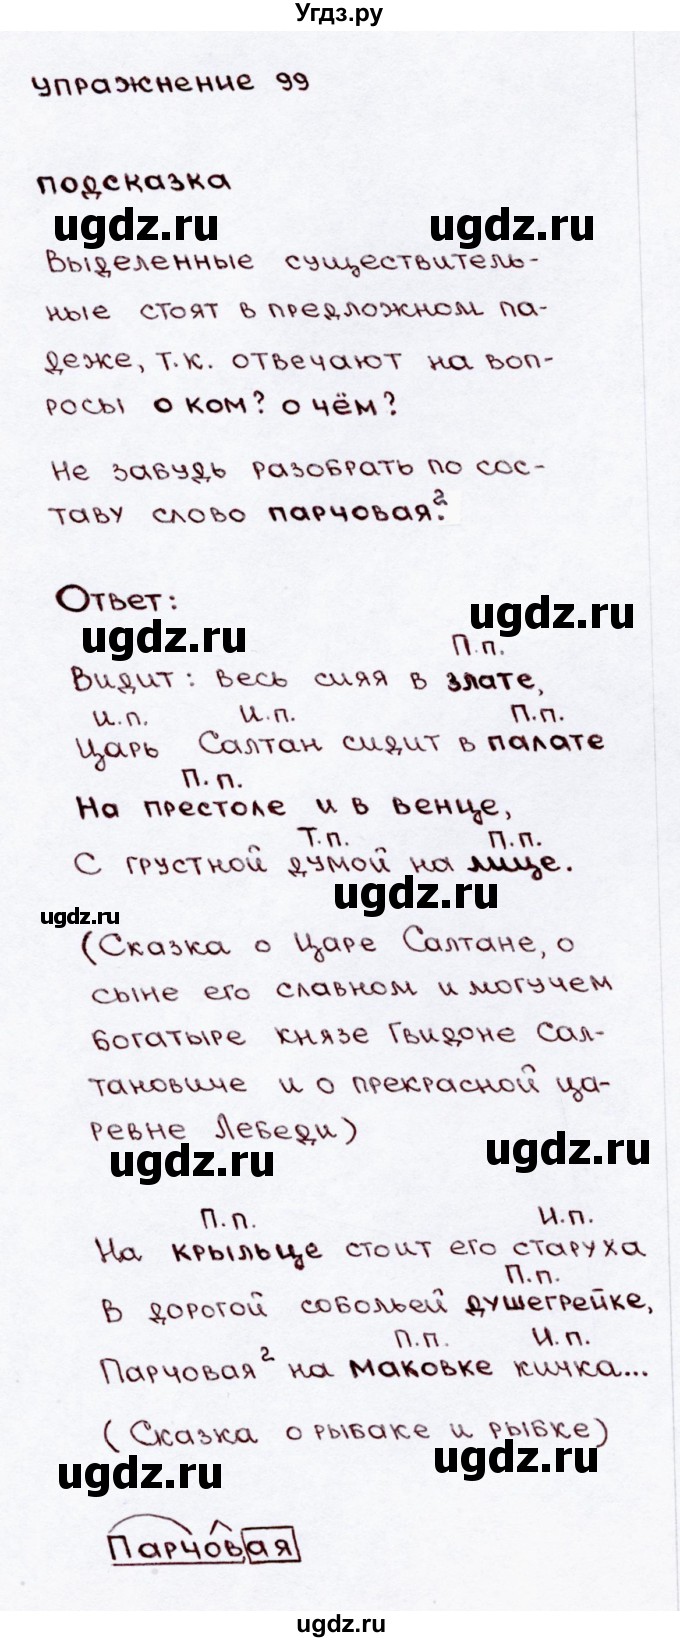 Угдз.ру
упражнение 99
подсказка
ugdz.ru ugdz.ru
Выделенные существитель-
ные стоят в предложном па-
деже, т.к. отвечают на воп-
росы о ком? о чём?
Не забудь разобрать по сос-
таву слово парчовая.²
Ответ:
ugdz.ru ugdz.ru
П.п.
Видит: весь сияя в злате,
И.п. И.п. П.п.
Царь Салтан сидит в палате
П.п.
На престоле и в венце,
Т.п. П.п.
С грустной думой на лице.
ugdz.ru ugdz.ru
(Сказка о Царе Салтане, о
сыне его славном и могучем
богатыре князе Гвидоне Сал-
тановиче и о прекрасной ца-
ревне Лебеди)
ugdz.ru ugdz.ru
П.п. И.п.
На крыльце стоит его старуха
П.п.
В дорогой собольей душегрейке,
П.п. И.п.
Парчовая² на маковке кичка...
(Сказка о рыбаке и рыбке)
ugdz.ru ugdz.ru
Парчовая
ugdz.ru